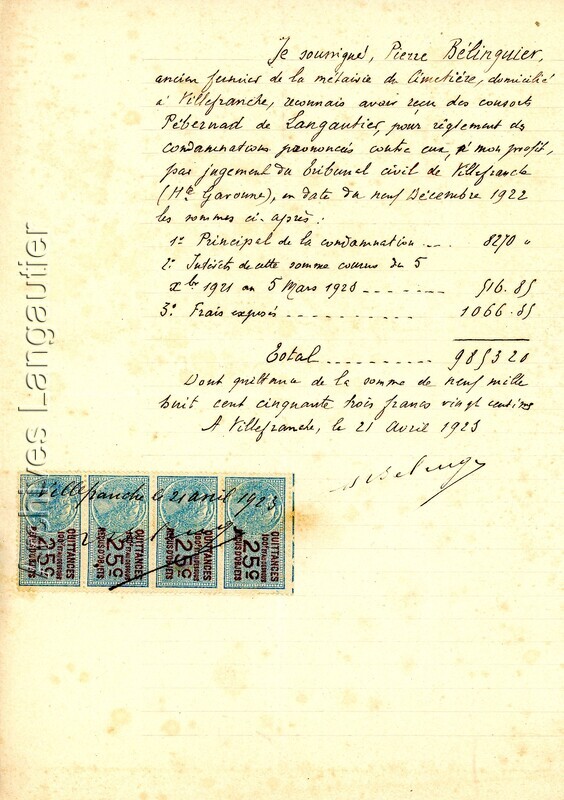 Je soussigné, Pierre Bélinguier,
ancien fermier de la métairie du Cimetière, domicilié
à Villefranche, reconnais avoir reçu des consorts
Pébernad de Langautier, pour règlement des
condamnations prononcées contre eux, à mon profit,
par jugement du Tribunal civil de Villefranche
(Hte Garonne), en date du neuf Décembre 1922
les sommes ci-après :
1º Principal de la condamnation 8270 "
2º Intérêts de cette somme courus du 5
Xbre 1921 au 5 Mars 1923 516.85
3º Frais exposés 1066.35
Total 9853 20
Dont quittance de la somme de neuf mille
huit cent cinquante trois francs vingt centimes
A Villefranche, le 21 Avril 1923
Villefranche le 21 avril 1923
QUITTANCES
REÇUS OBJETS
25c
QUITTANCES
REÇUS OBJETS
25c
QUITTANCES
REÇUS OBJETS
25c
QUITTANCES
REÇUS OBJETS
25c
Archives Langautier